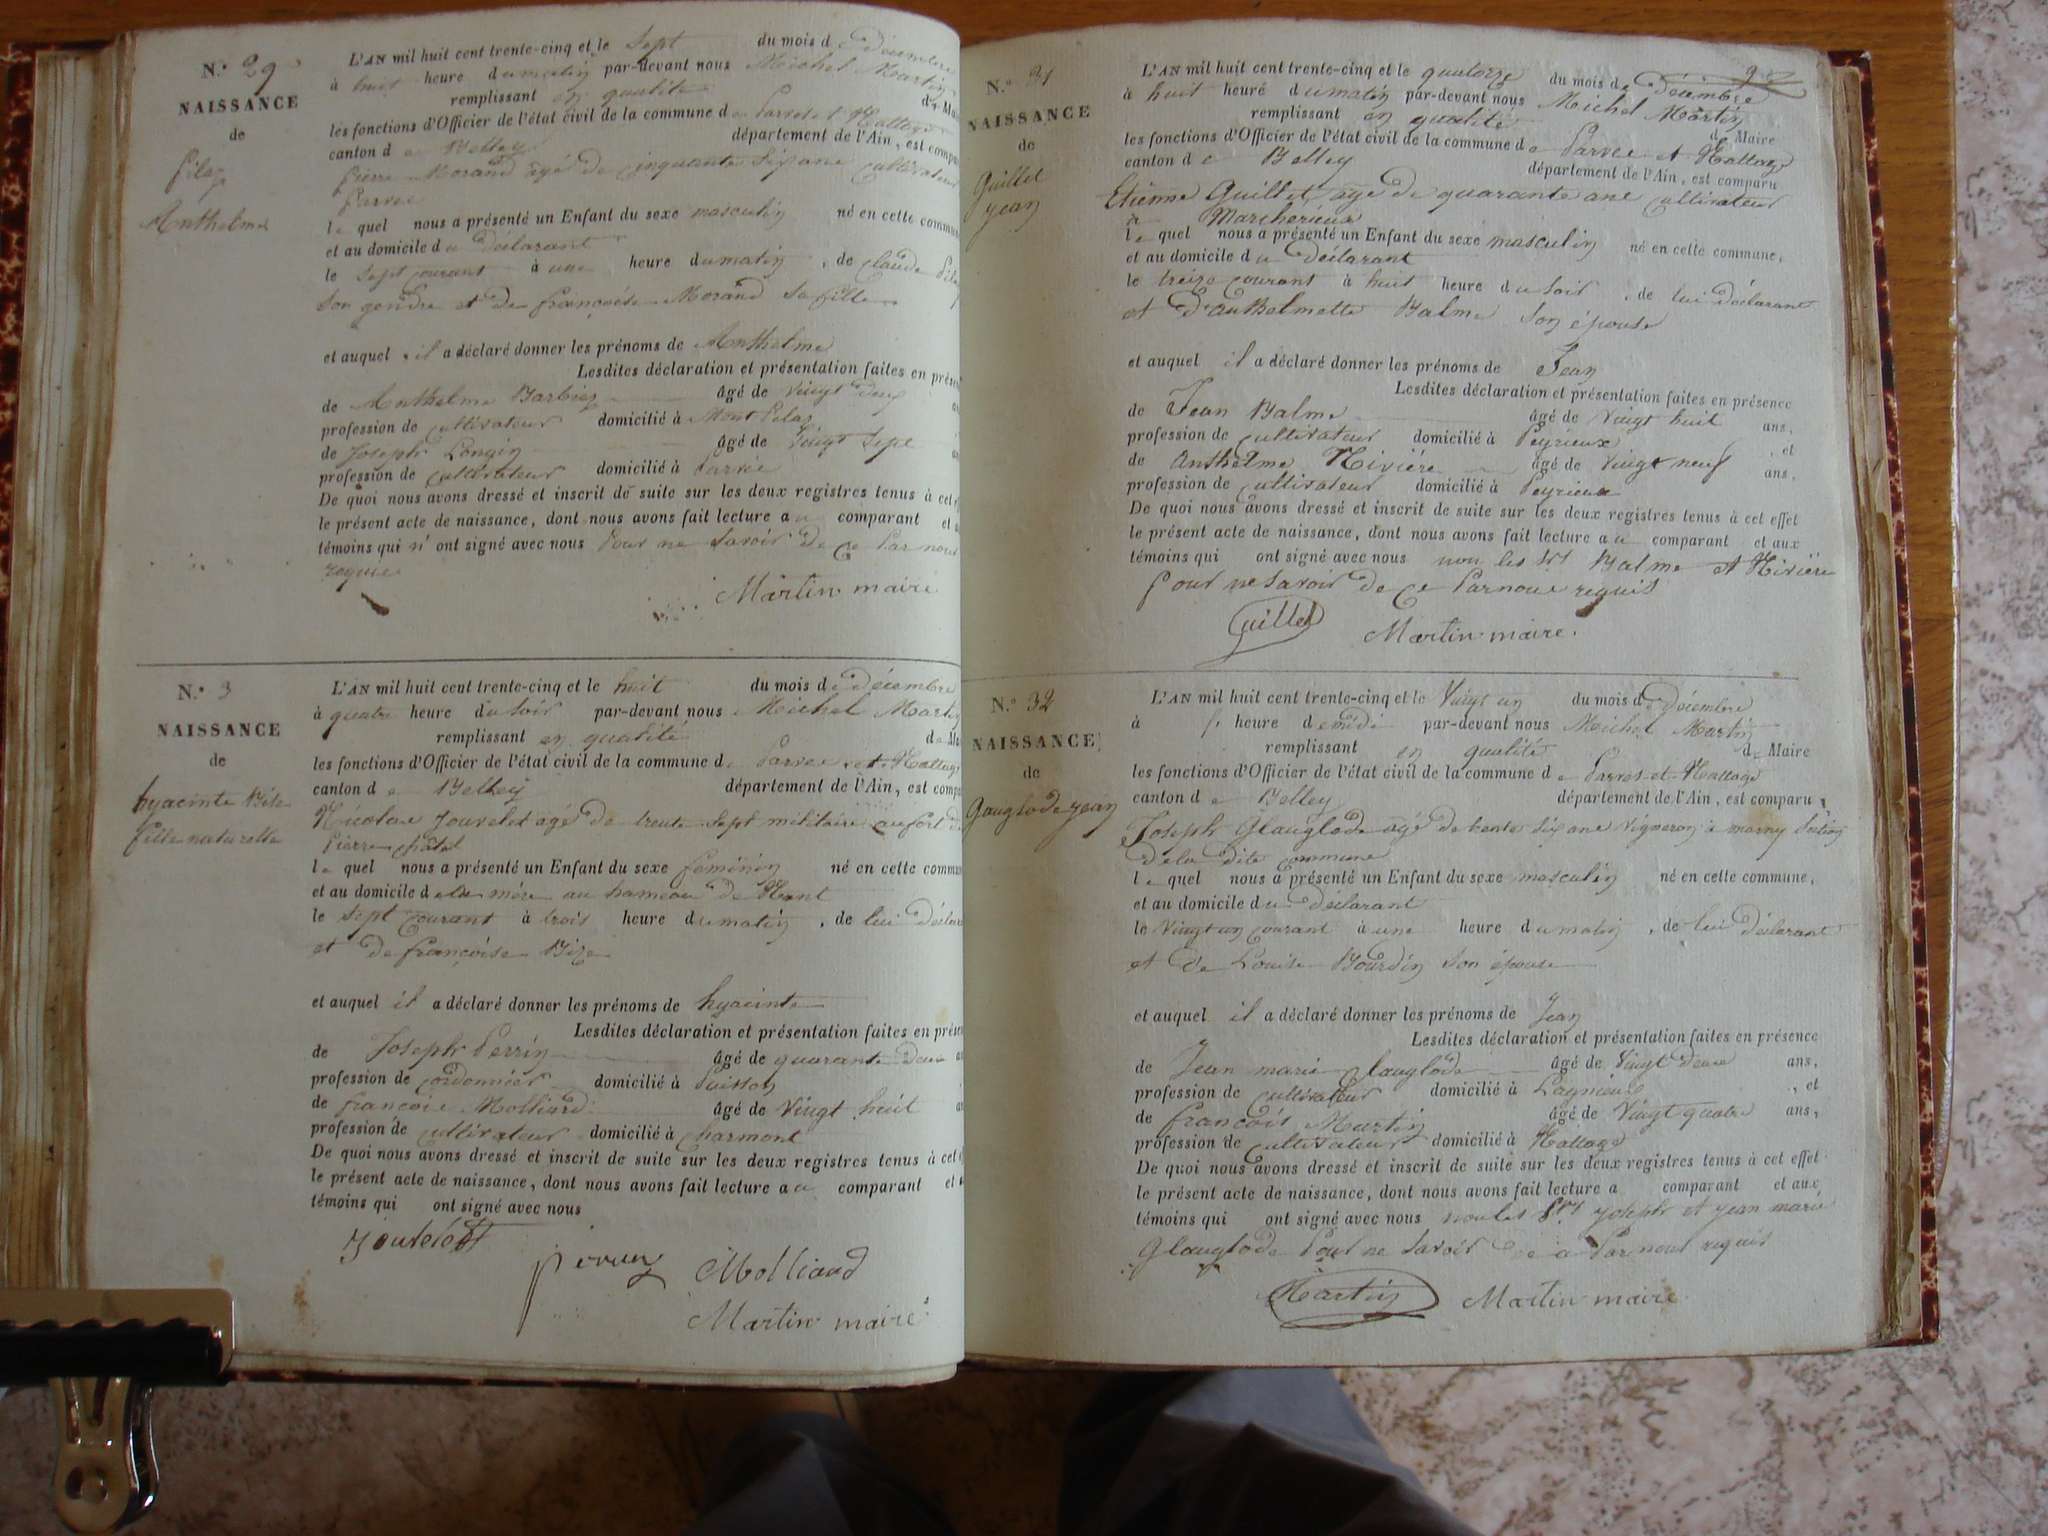 N.° 29
NAISSANCE
de
Pilaz
Anthelme
L'AN mil huit cent trente-cinq et le sept du mois de décembre
à huit heure du matin par-devant nous Michel Martin
remplissant en qualité de Mai
les fonctions d'Officier de l'état civil de la commune de Parves et Nattage
canton de Belley département de l'Ain, est compa
Pierre Morand agé de cinquante six ans cultivateur
Parves
le quel nous a présenté un Enfant du sexe masculin né en cette commune
et au domicile du déclarant
le sept courant à une heure du matin, de claude Pila
son gendre et de françoise Morand sa fille
et auquel il a déclaré donner les prénoms de Anthelme
Lesdites déclaration et présentation faites en présen
de Anthelme Barbier âgé de vingt deux an
profession de cultivateur domicilié à Mont Pelaz
de Joseph Longin âgé de vingt sept
profession de cultivateur domicilié à Parves
De quoi nous avons dressé et inscrit de suite sur les deux registres tenus à cet
le présent acte de naissance, dont nous avons fait lecture au comparant et a
témoins qui n'ont signé avec nous pour ne savoir de ce par nous
requis
Martin maire
N.° 3
NAISSANCE
de
hyacinte Bize
fille naturelle
L'AN mil huit cent trente-cinq et le huit du mois de décembre
à quatre heure du soir par-devant nous Michel Martin
remplissant en qualité de Ma
les fonctions d'Officier de l'état civil de la commune de Parves et Nattage
canton de Belley département de l'Ain, est compa
Nicolas Jouvelet agé de trente sept militaire au fort de
Pierre chatel
le quel nous a présenté un Enfant du sexe feminin né en cette commu
et au domicile de la mére au hameau de Nant
le sept courant à trois heure du matin, de lui déclara
et de françoise Bize
et auquel il a déclaré donner les prénoms de hyacinte
Lesdites déclaration et présentation faites en présen
de Joseph Perrin âgé de quarante deux an
profession de cordonnier domicilié à Puisson
de françois Molliard âgé de vingt huit an
profession de cultivateur domicilié à charmont
De quoi nous avons dressé et inscrit de suite sur les deux registres tenus à cet
le présent acte de naissance, dont nous avons fait lecture au comparant et a
témoins qui ont signé avec nous
Jouvelott
perrin Molliard
Martin maire
N.° 31
NAISSANCE
de
Guillet
jean
L'AN mil huit cent trente-cinq et le quatorze du mois de décembre
à huit heure du matin par-devant nous Michel Martin
remplissant en qualité de Maire
les fonctions d'Officier de l'état civil de la commune de Parves et Nattage
canton de Belley département de l'Ain, est comparu
Etienne Guillet agé de quarante ans cultivateur
à Marcherieux
le quel nous a présenté un Enfant du sexe masculin né en cette commune,
et au domicile du déclarant
le treize courant à huit heure du soir, de lui déclarant
et d'anthelmette Balme son épouse
et auquel il a déclaré donner les prénoms de Jean
Lesdites déclaration et présentation faites en présence
de Jean Balme âgé de vingt huit ans,
profession de cultivateur domicilié à Peyrieux, et
de Anthelme Riviére âgé de vingt neuf ans,
profession de cultivateur domicilié à Peyrieux
De quoi nous avons dressé et inscrit de suite sur les deux registres tenus à cet effet
le présent acte de naissance, dont nous avons fait lecture au comparant et aux
témoins qui ont signé avec nous non les srs Balme et Riviére
pour ne savoir de ce par nous requis
Guillet
Martin maire.
N.° 32
NAISSANCE
de
Gauglode jean
L'AN mil huit cent trente-cinq et le vingt un du mois de décembre
à heure de midi par-devant nous Michel Martin
remplissant en qualité de Maire
les fonctions d'Officier de l'état civil de la commune de Parves et Nattage
canton de Belley département de l'Ain, est comparu
Joseph Glauglode agé de trente six ans vigneron à
de la dite commune
le quel nous a présenté un Enfant du sexe masculin né en cette commune,
et au domicile du déclarant
le vingt un courant à une heure du matin, de lui déclarant
et de Louise Bourdin son épouse
et auquel il a déclaré donner les prénoms de Jean
Lesdites déclaration et présentation faites en présence
de Jean marie glauglode âgé de vingt deux ans,
profession de cultivateur domicilié à Lagnieu, et
de françois Martin âgé de vingt quatre ans,
profession de cultivateur domicilié à Nattage
De quoi nous avons dressé et inscrit de suite sur les deux registres tenus à cet effet
le présent acte de naissance, dont nous avons fait lecture a comparant et aux
témoins qui ont signé avec nous non les srs joseph et jean marie
Glauglode pour ne savoir de ce par nous requis
Martin
Martin maire